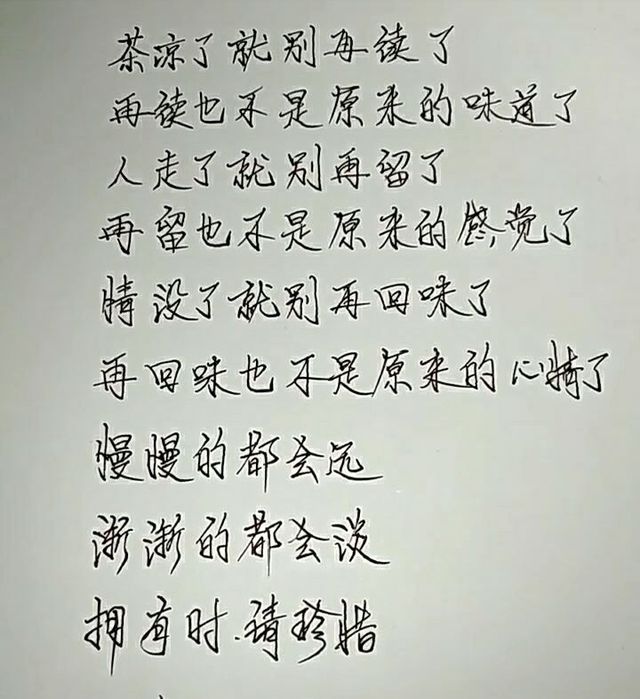 茶凉了就别再续了
再续也不是原来的味道了
人走了就别再留了
再留也不是原来的感觉了
情没了就别再回味了
再回味也不是原来的心情了
慢慢的都会远
渐渐的都会淡
拥有时.请珍惜